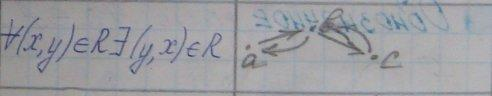 ∀(x,y)∈R∃(y,x)∈R
a
c